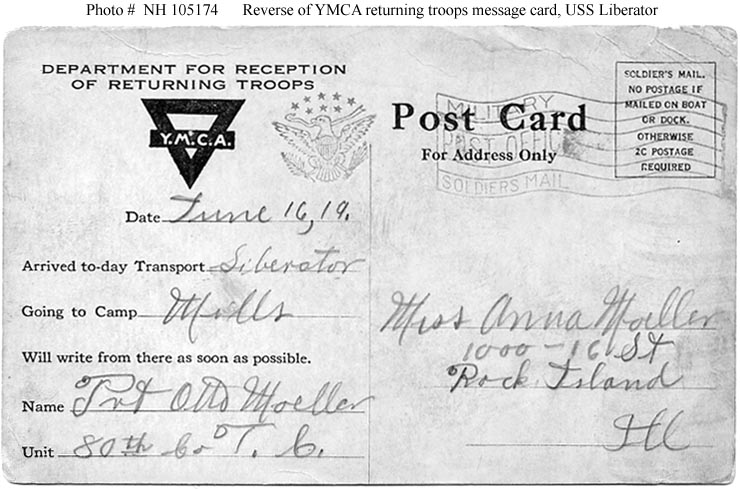 Photo # NH 105174 Reverse of YMCA returning troops message card, USS Liberator
DEPARTMENT FOR RECEPTION
OF RETURNING TROOPS
Y.M.C.A.
Date June 16, 19.
Arrived to-day Transport Liberator
Going to Camp Mills
Will write from there as soon as possible.
Name Pvt Otto Moeller
Unit 80th Co T. C.
Post Card
For Address Only
MILITARY
POST OFFICE
SOLDIERS MAIL
SOLDIER'S MAIL.
NO POSTAGE IF
MAILED ON BOAT
OR DOCK.
OTHERWISE
2C POSTAGE
REQUIRED
Miss Anna Moeller
1000 - 16 St
Rock Island
Ill